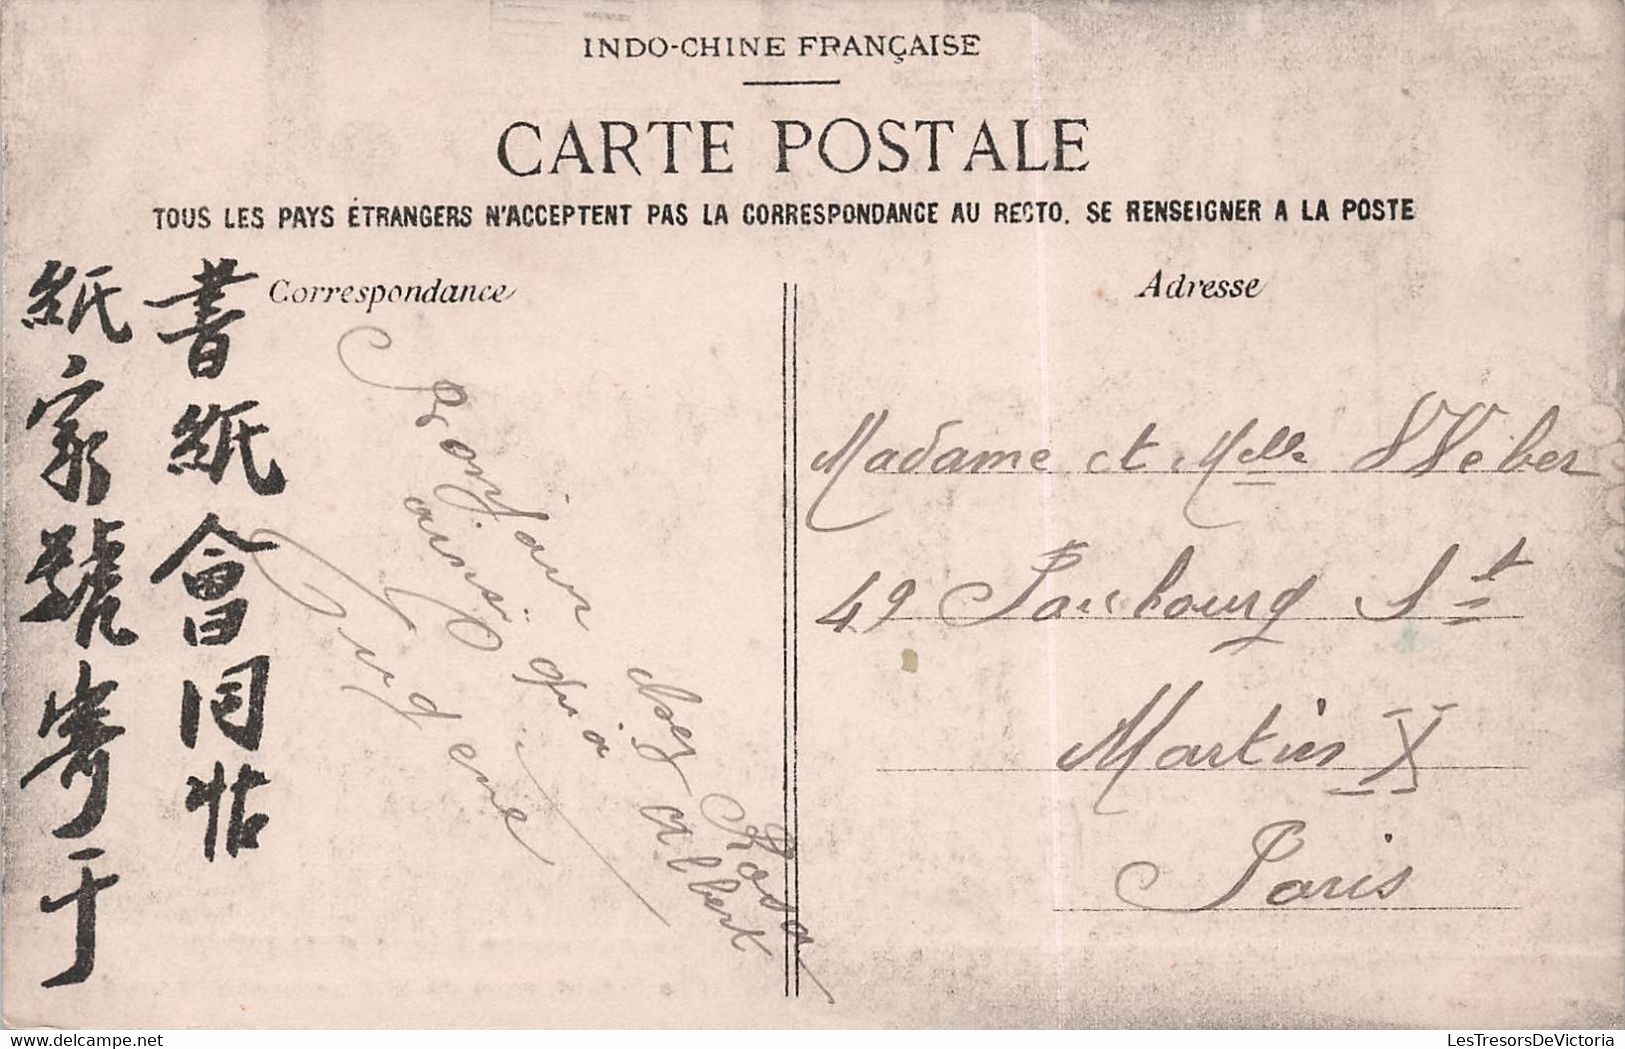 INDO-CHINE FRANÇAISE
CARTE POSTALE
TOUS LES PAYS ÉTRANGERS N'ACCEPTENT PAS LA CORRESPONDANCE AU RECTO. SE RENSEIGNER A LA POSTE
Correspondance
書紙會同帖
紙家號寄于
Bonjour chez Rosa
ainsi qu'à Albert
Eugene
Adresse
Madame et Melle Weber
49 Faubourg St
Martin X
Paris
LesTresorsDeVictoria
delcampe.net